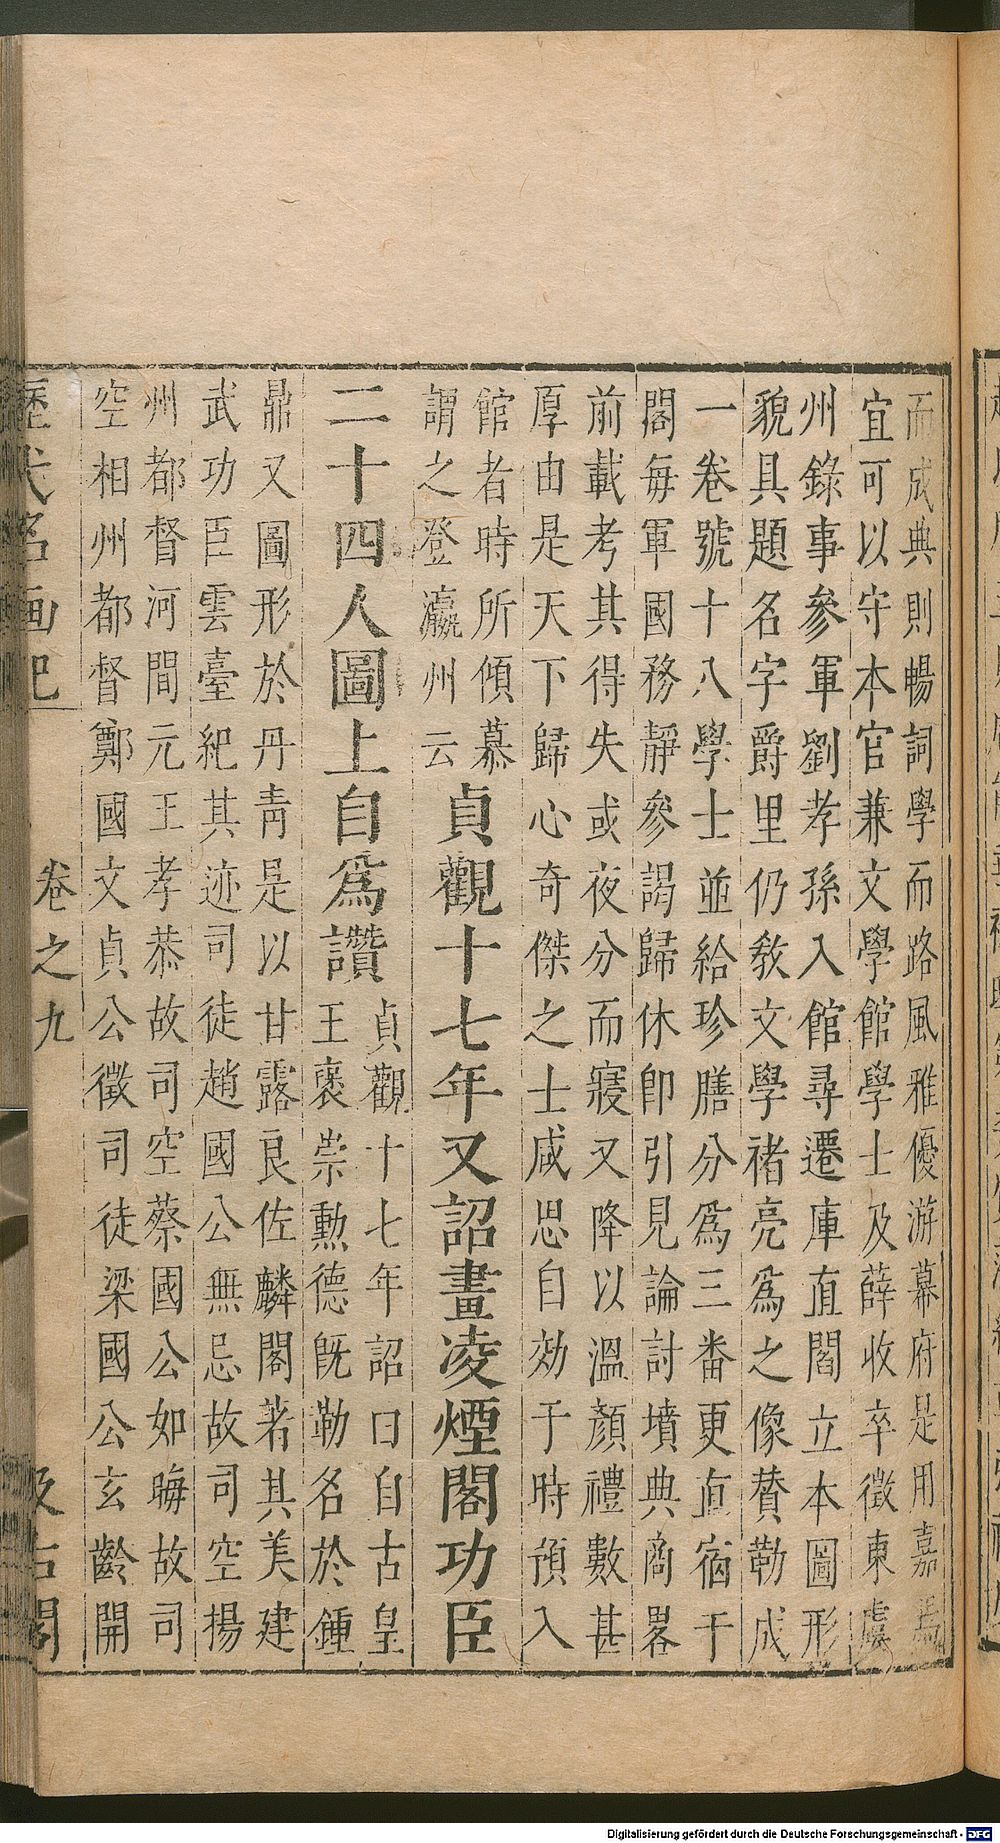 而成典則暢詞學而路風雅優游幕府是用嘉焉
宜可以守本官兼文學館學士及薛收卒徵東虞
州錄事參軍劉孝孫入館尋遷庫直閻立本圖形
貌具題名字爵里仍敎文學褚亮爲之像贊勒成
一卷號十八學士並給珍膳分爲三畨更直宿于
閣每軍國務靜參謁歸休卽引見論討墳典商畧
前載考其得失或夜分而寢又降以溫顏禮數甚
厚由是天下歸心奇傑之士咸思自効于時預入
館者時所傾慕
謂之登瀛州云
貞觀十七年又詔畫凌煙閣功臣
二十四人圖上自爲讚
貞觀十七年詔曰自古皇
王褒崇勳德旣勒名於鍾
鼎又圖形於丹靑是以甘露良佐麟閣著其美建
武功臣雲臺紀其迹司徒趙國公無忌故司空揚
州都督河間元王孝恭故司空蔡國公如晦故司
空相州都督鄭國文貞公徵司徒梁國公玄齡開
歷代名画记
卷之九
汲古閣
Digitalisierung gefördert durch die Deutsche Forschungsgemeinschaft - DFG